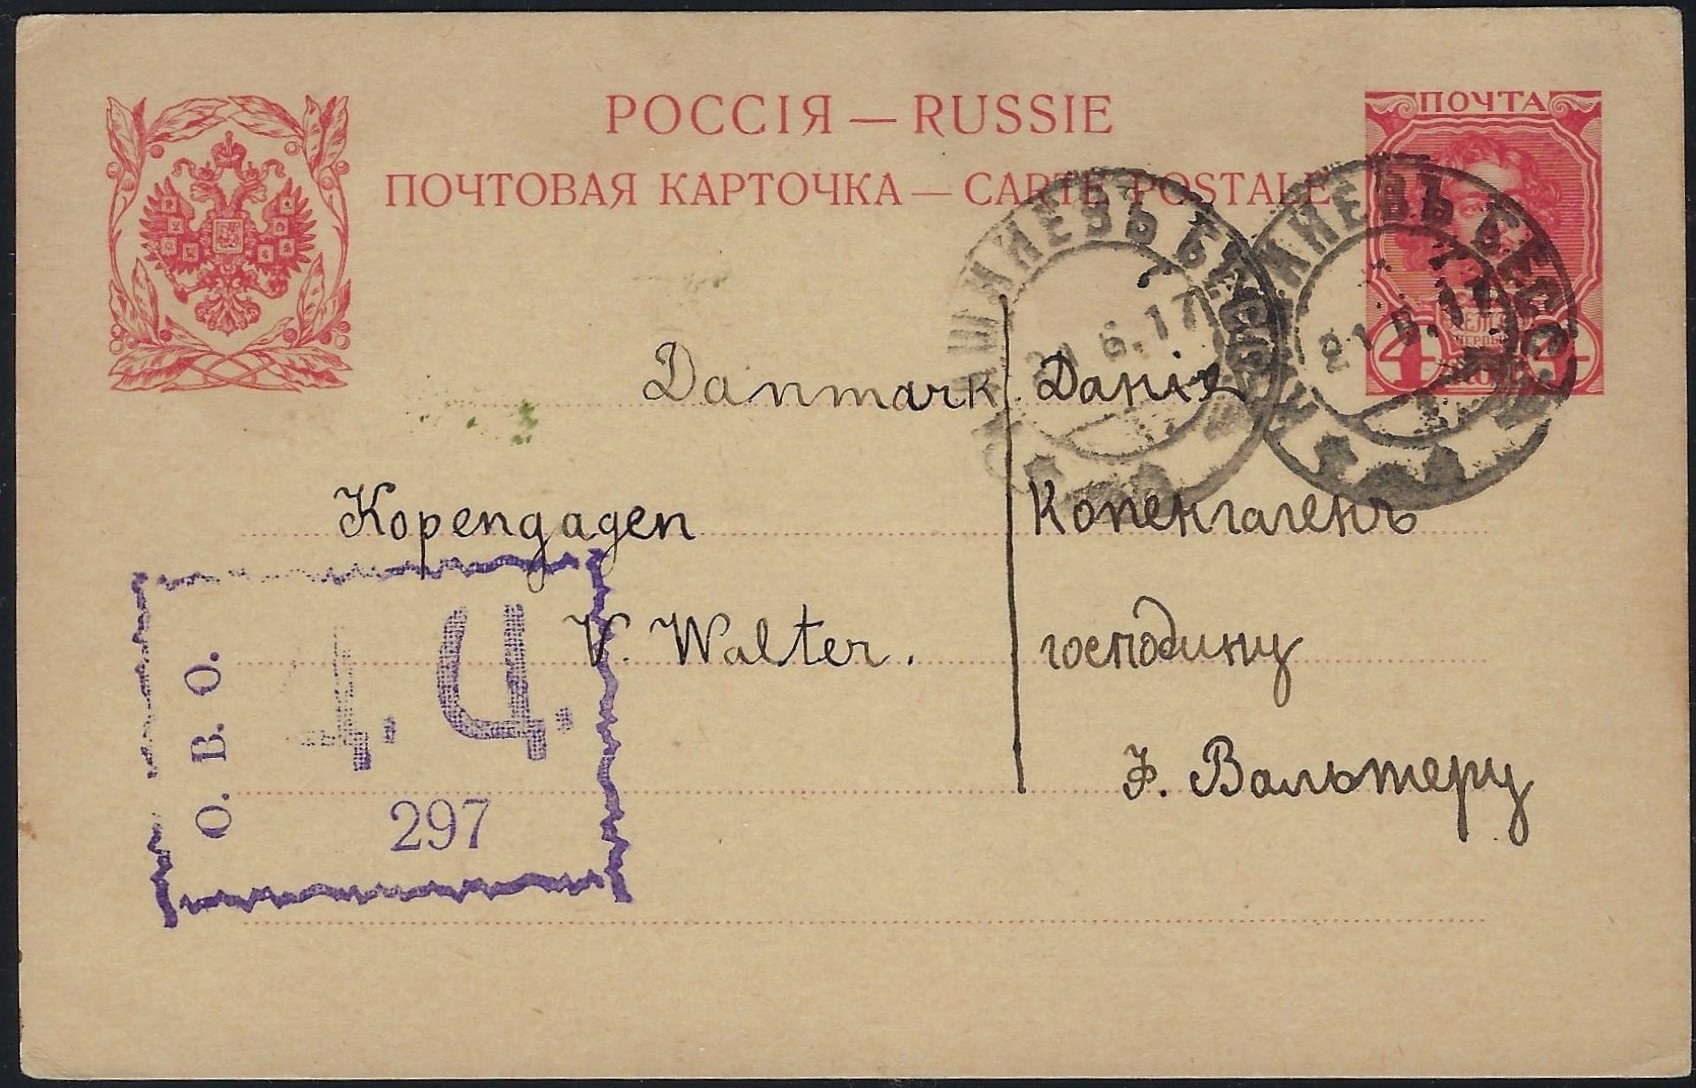 РОССІЯ — RUSSIE
ПОЧТОВАЯ КАРТОЧКА — CARTE POSTALE
ПОЧТА
4 4
КИШИНЕВЪ БЕСС.
21 6.17
КИШИНЕВЪ БЕСС.
21 6.17
Danmark Данія
Kopengagen Копенгагенъ
V. Walter. господину
Ф. Вальтеру
О. В. О.
Д. Ц.
297